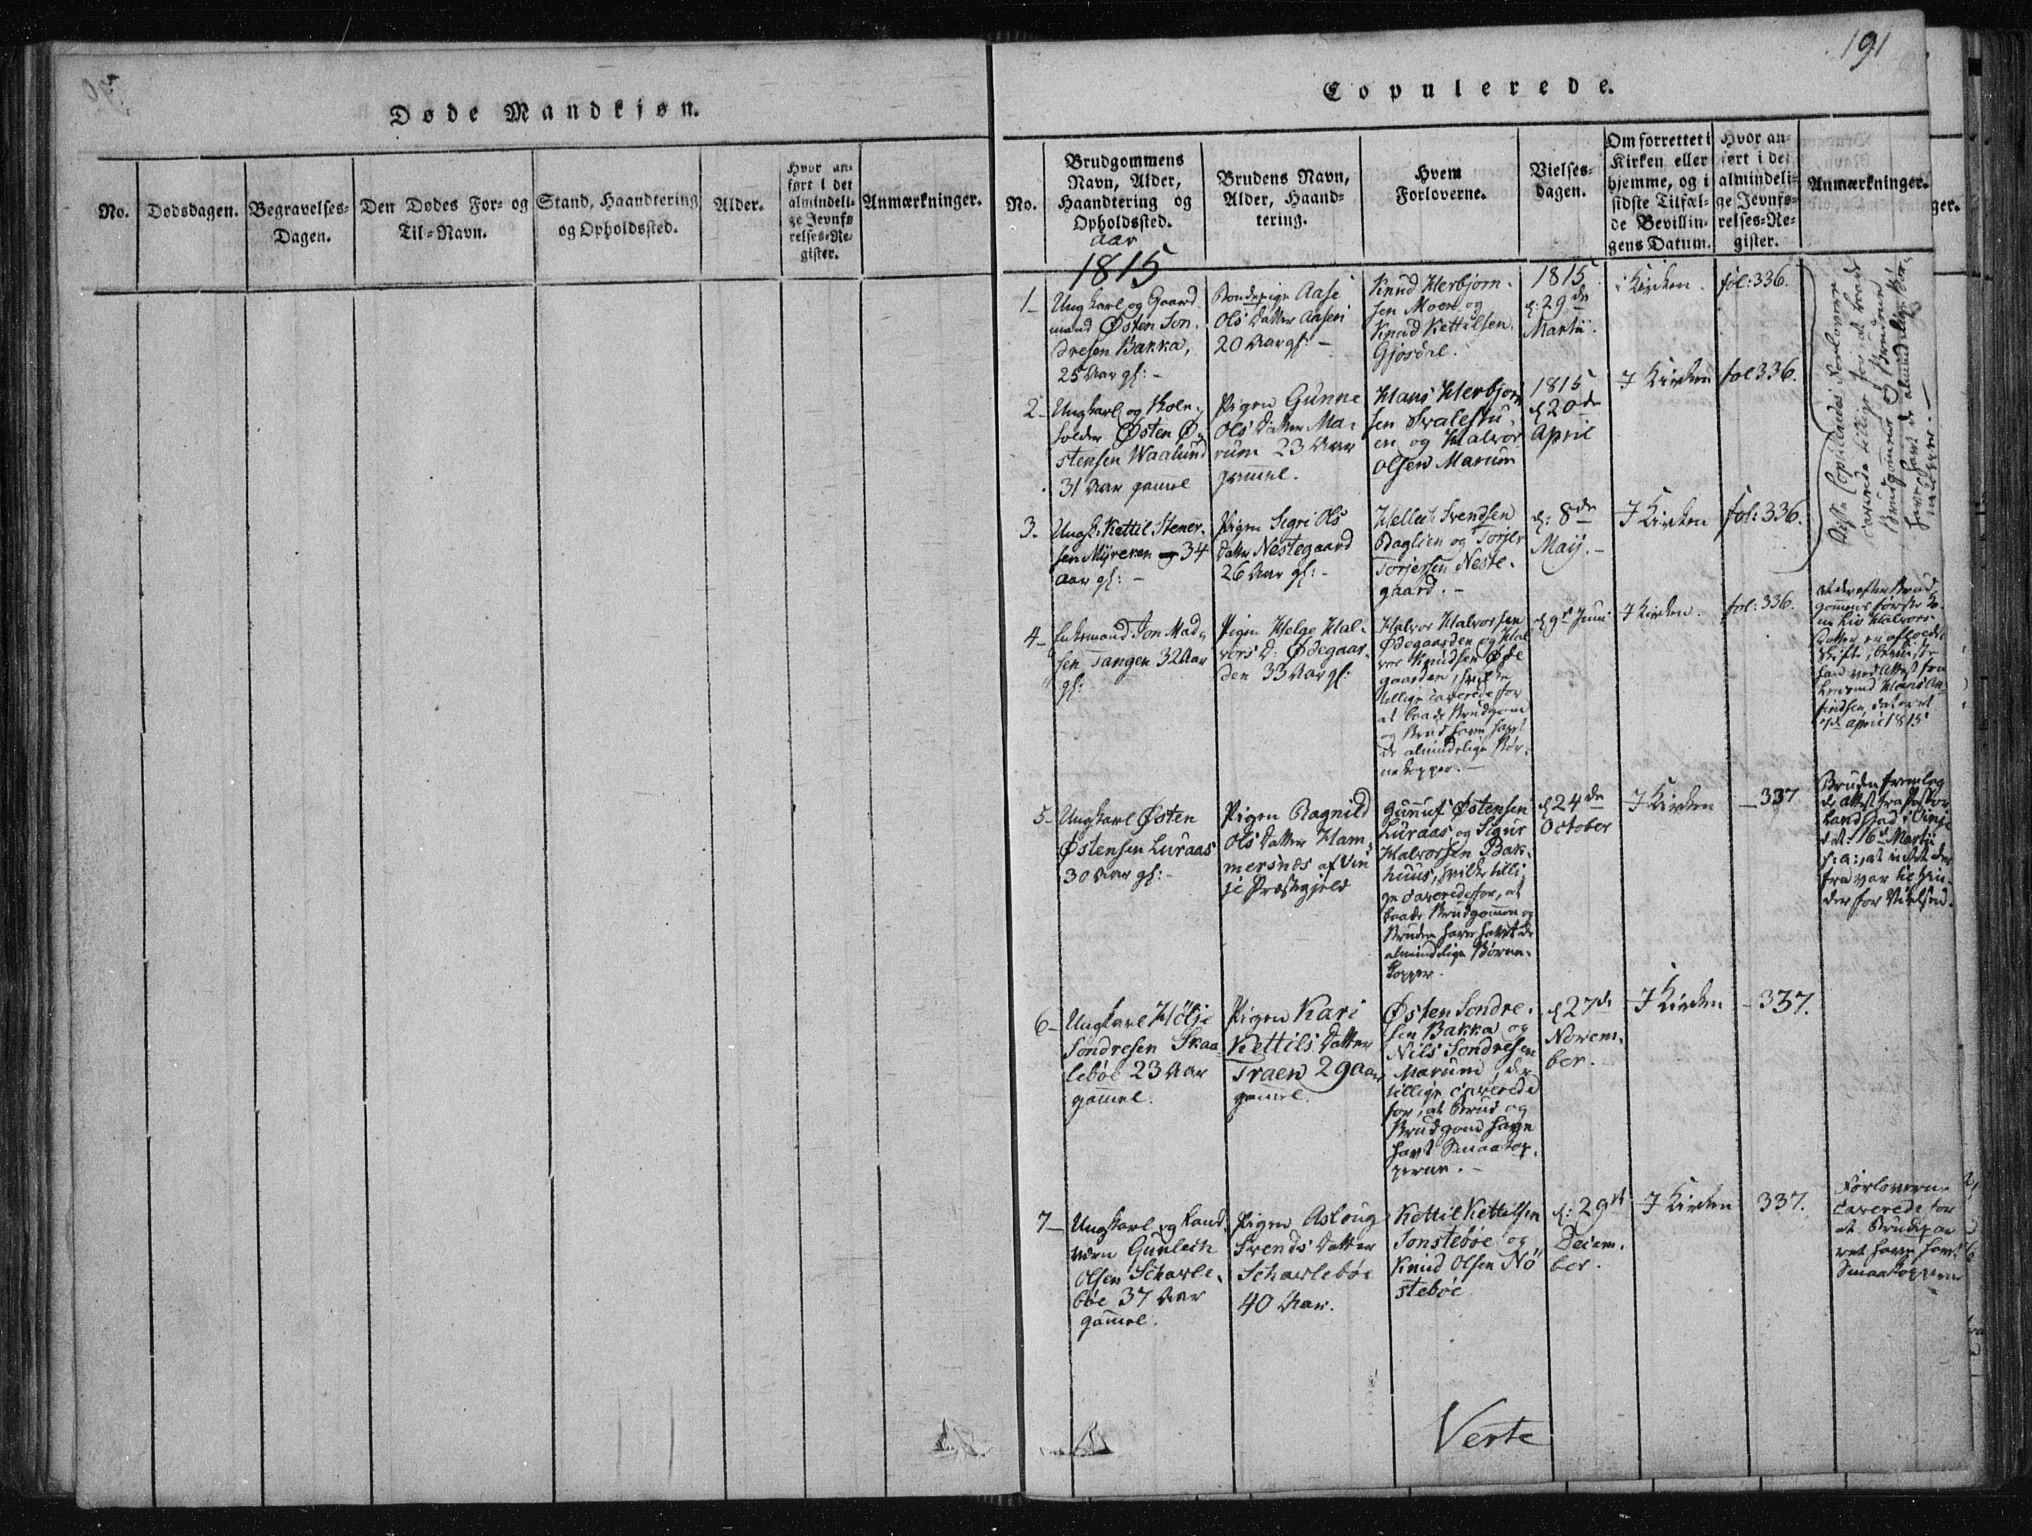 Døde Mandkjøn.
No.
Dødsdagen.
Begravelses-
Dagen.
Den Dødes For- og
Til-Navn.
Stand, Haandtering
og Opholdssted.
Alder.
Hvor an-
ført i det
almindeli-
ge Jevnfø-
relses-Re-
gister.
Anmærkninger.
191
Copulerede.
No.
Brudgommens
Navn, Alder,
Haandtering og
Opholdssted.
Brudens Navn,
Alder, Haand-
tering.
Hvem
Forloverne.
Vielses-
dagen.
Om forrettet i
Kirken eller
hjemme, og i
sidste Tilfæl-
de Bevillin-
gens Datum.
Hvor an-
ført i det
almindeli-
ge Jevnfø-
relses-Re-
gister.
Anmærkninger.
ger.
Aar
1815
1-
Ungkarl og Gaard
mand Østen Son-
dresen Bakka,
25 Aar gl: -
Bondepige Aase
Ols Datter Aasen
20 Aar gl: -
Knud Herbjørn-
sen Moen og
Knud Kettilsen
Gjosdal.
1815
d: 29de
Martii.
i Kirken.
fol: 336.
2-
Ungkarl og
Østen Ø-
stensen Waalund
31 Aar gamel
Pigen Gunne
Ols Datter Ma-
rum 23 Aar
gammel.
Hans Herbjørn
sen Svalestu-
en og Halvor
Olsen Marum
1815
d 20de
April
I Kirken
fol 336.
Disse Copuleredes Forlovere
caverede tillige for at baade
Brudgommen og Bruden
have havt de almindelige Bør-
nekopper.-
3-
Ungk: Kettil Stener-
sen Myreren 34
Aar gl: -
Pigen Sigri Ols
Datter Nestegaard
26 Aar gl: -
Hellek Svendsen
Daglien og Torjer
Torjersen Neste-
gaard. -
d: 8de
Maij. -
I Kirken
fol: 336.
4-
Enkemand Jon Mad-
sen Tangen 32 Aar
gl:
Pigen Helge Hal-
vors D: Ødegaar-
den 33 Aar gl:
Halvor Halvorsen
Ødegaarden og Hal
vor Knudsen Øde
gaarden, hvilke
tillige caverede for
at baade Brudgom
og Brud have havt
de almindelige Bør-
nekopper. -
d 9de Juni
I Kirken.
fol: 336.
At der efter Brud
gommens første Ko-
ne Liv Halvors-
Datter er afholdt
Skifte, beviiste
han ved Attest fra
Lensmd Hans An-
findsen, dateret
7de April 1815
5-
Ungkarl Østen
Østensen Luraas
30 Aar gl: -
Pigen Ragnild
Ols Datter Ham-
mersnes af Vin
je Præstegjeld
Gunuf Østensen
Luraas og Sigur
Halvorsen Bak-
huus, hvilke tilli-
ge caverede for, at
baade Brudgommen og
Bruden have havt de
almindelige Børne-
kopper.
d 24de
October
I Kirken
- 337
Bruden fremlag
de Attest fra Pastor
Landstad i Vinje
dat: 16d Martii
s: a:, at intet der
fra var til Hin-
der for Vielsen.
6-
Ungkarl Hölje
Sondresen Skaa-
lebøe 23 Aar
gammel.
Pigen Kari
Kettils Datter
Traen 29 Aar
gammel.
Østen Sondre-
sen Bakka og
Nils Sondresen
Marum, der
tillige caverede
for, at Brud og
Brudgom have
havt Smaakop-
perne. -
d 27de
Novem-
ber.
I Kirken
- 337.
7-
Ungkarl og Land
værn Gunleik
Olsen Scharle-
bøe 37 Aar
gammel.
Pigen Aslaug
Svends Datter
Scharlebøe
40 Aar.
Kettil Kettilsen
Sonstebøe og
Knud Olsen Nö
stebøe
d: 29de
Decem-
ber.
I Kirken
337.
Forloverne
caverede for
at Brudepar
ret have havt
Smaakopperne
Verte